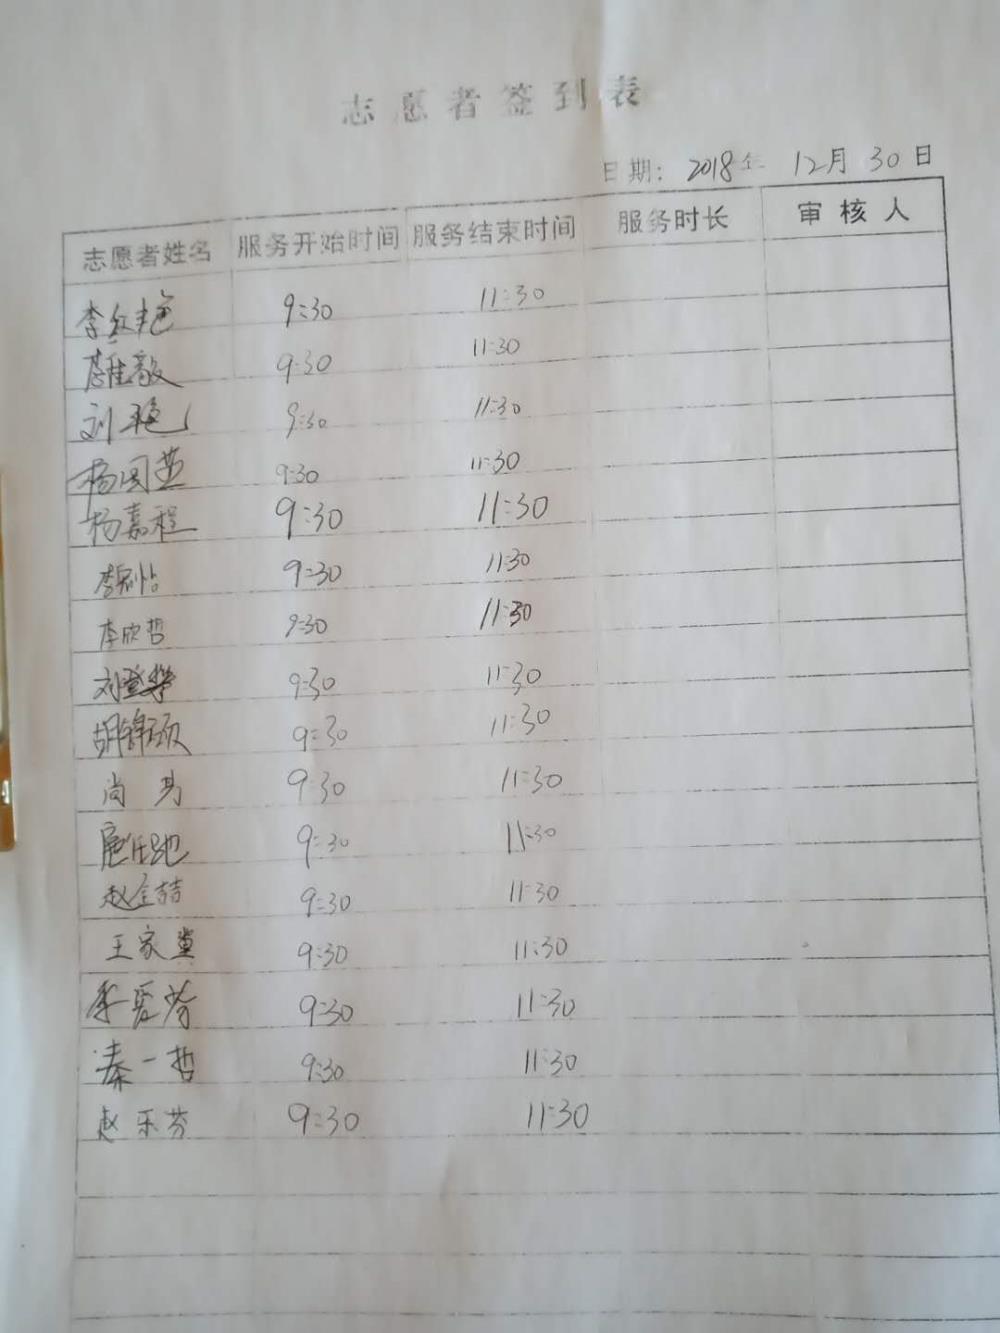 志愿者签到表
日期: 2018年 12月 30日
志愿者姓名 服务开始时间 服务结束时间 服务时长 审核人
李红艳 9:30 11:30
9:30 11:30
刘艳 9:30 11:30
杨国燕 9:30 11:30
杨嘉程 9:30 11:30
李 怡 9:30 11:30
李欣哲 9:30 11:30
刘登攀 9:30 11:30
胡锦颂 9:30 11:30
尚易 9:30 11:30
9:30 11:30
赵金喆 9:30 11:30
王家堂 9:30 11:30
李爱芳 9:30 11:30
秦一哲 9:30 11:30
赵乐芬 9:30 11:30